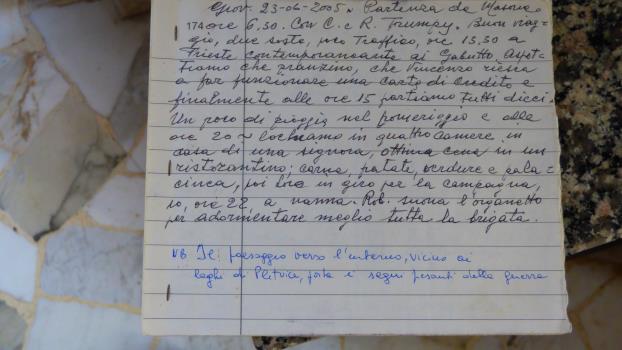 Giov. 23-06-2005. Partenza da
174 ore 6,30. Con C. e R. Trumpy. Buon viag-
gio, due soste, poco traffico, ore 13,30 a
Trieste contemporaneante ai Gabutto. Aspet-
tiamo che pranzino, che Vincenzo riesca
a far funzionare una carta di credito e
finalmente alle ore 15 partiamo tutti dieci.
Un poco di pioggia nel pomeriggio e alle
ore 20 ~ lochiamo in quattro camere in
casa di una signora, ottima cena in un
ristorantino; carne, patate, verdure e pala=
cinca, poi loro in giro per la campagna,
io, ore 22, a nanna. Rob. suona l'organetto
per addormentare meglio tutta la brigata.
NB Il paesaggio verso l'interno, vicino ai
laghi di Plitvice, porta i segni pesanti della guerra